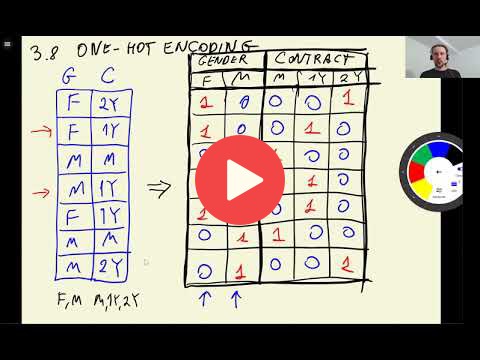 3.8 ONE-HOT ENCODING
G C
F 2Y
F 1Y
M M
M 1Y
F 1Y
M M
M 2Y
F, M M, 1Y, 2Y
GENDER CONTRACT
F M M 1Y 2Y
1 0 0 0 1
1 0 0 1 0
0 1 0 0
1 0
1 0 1 0
0 1 1 0 0
0 1 0 0 1